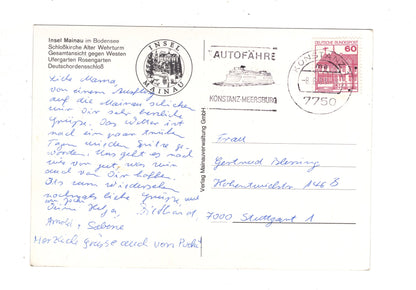 Insel Mainau im Bodensee
Schloßkirche Alter Wehrturm
Gesamtansicht gegen Westen
Ufergarten Rosengarten
Deutschordensschloß
INSEL
MAINAU
AUTOFÄHRE
KONSTANZ-MEERSBURG
KONSTANZ
7750
DEUTSCHE BUNDESPOST
60
Verlag Mainauverwaltung GmbH
Liebe Mama,
von einem Ausflug
auf die Mainau schicken
wir Dir sehr herzliche
Grüsse. Das Wetter ist
nach ein paar trüben
Tagen wieder Spitze ge-
worden. Uns geht es nach
wie vor gut, was wir
auch von Dir hoffen.
wiedersehen
nochmals liebe Grüsse
Sabine
Herzliche Grüsse auch von
Frau
Gertrud
146 B
7000 Stuttgart 1